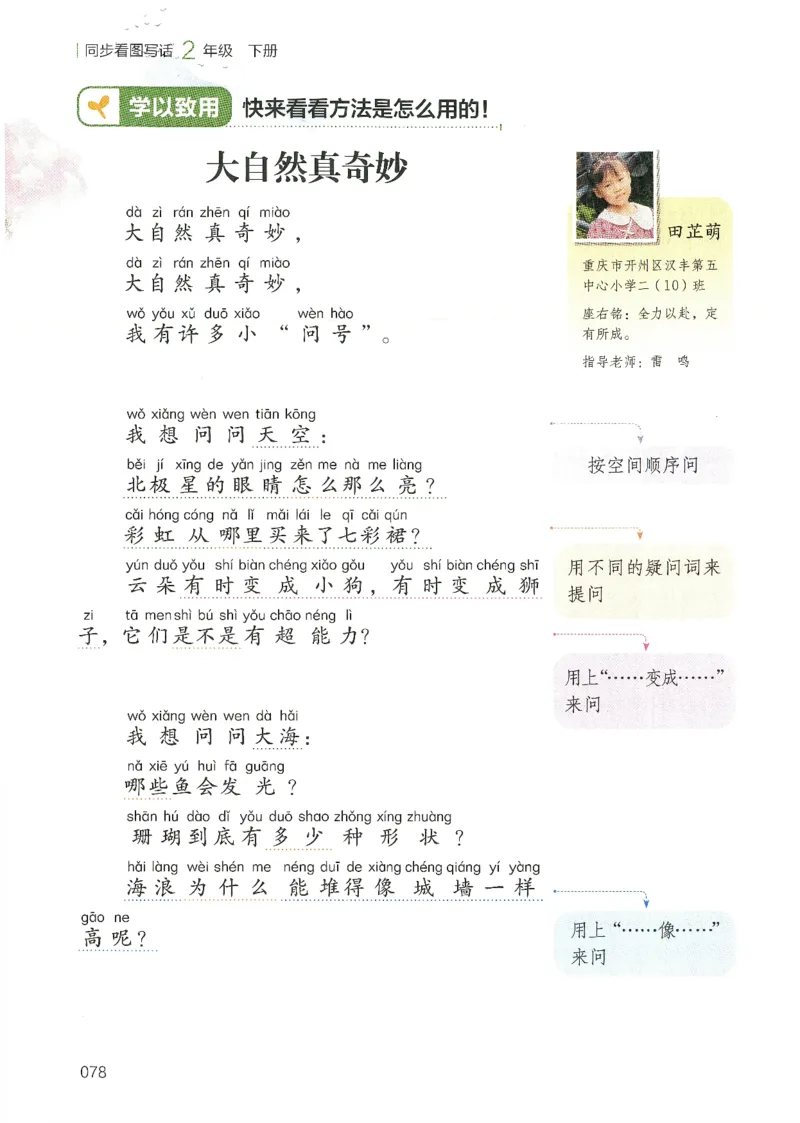 同步看图写话 2 年级 下册
学以致用 快来看看方法是怎么用的！
大自然真奇妙
dà zì rán zhēn qí miào
大自然真奇妙，
dà zì rán zhēn qí miào
大自然真奇妙，
wǒ yǒu xǔ duō xiǎo wèn hào
我有许多小“问号”。
田芷萌
重庆市开州区汉丰第五
中心小学二（10）班
座右铭：全力以赴，定
有所成。
指导老师：雷 鸣
wǒ xiǎng wèn wen tiān kōng
我想问问天空：
běi jí xīng de yǎn jing zěn me nà me liàng
北极星的眼睛怎么那么亮？
按空间顺序问
cǎi hóng cóng nǎ lǐ mǎi lái le qī cǎi qún
彩虹从哪里买来了七彩裙？
yún duǒ yǒu shí biàn chéng xiǎo gǒu yǒu shí biàn chéng shī
云朵有时变成小狗，有时变成狮
zi tā men shì bú shì yǒu chāo néng lì
子，它们是不是有超能力？
用不同的疑问词来
提问
用上“……变成……”
来问
wǒ xiǎng wèn wen dà hǎi
我想问问大海：
nǎ xiē yú huì fā guāng
哪些鱼会发光？
shān hú dào dǐ yǒu duō shao zhǒng xíng zhuàng
珊瑚到底有多少种形状？
hǎi làng wèi shén me néng duī de xiàng chéng qiáng yí yàng
海浪为什么能堆得像城墙一样
gāo ne
高呢？
用上“……像……”
来问
078